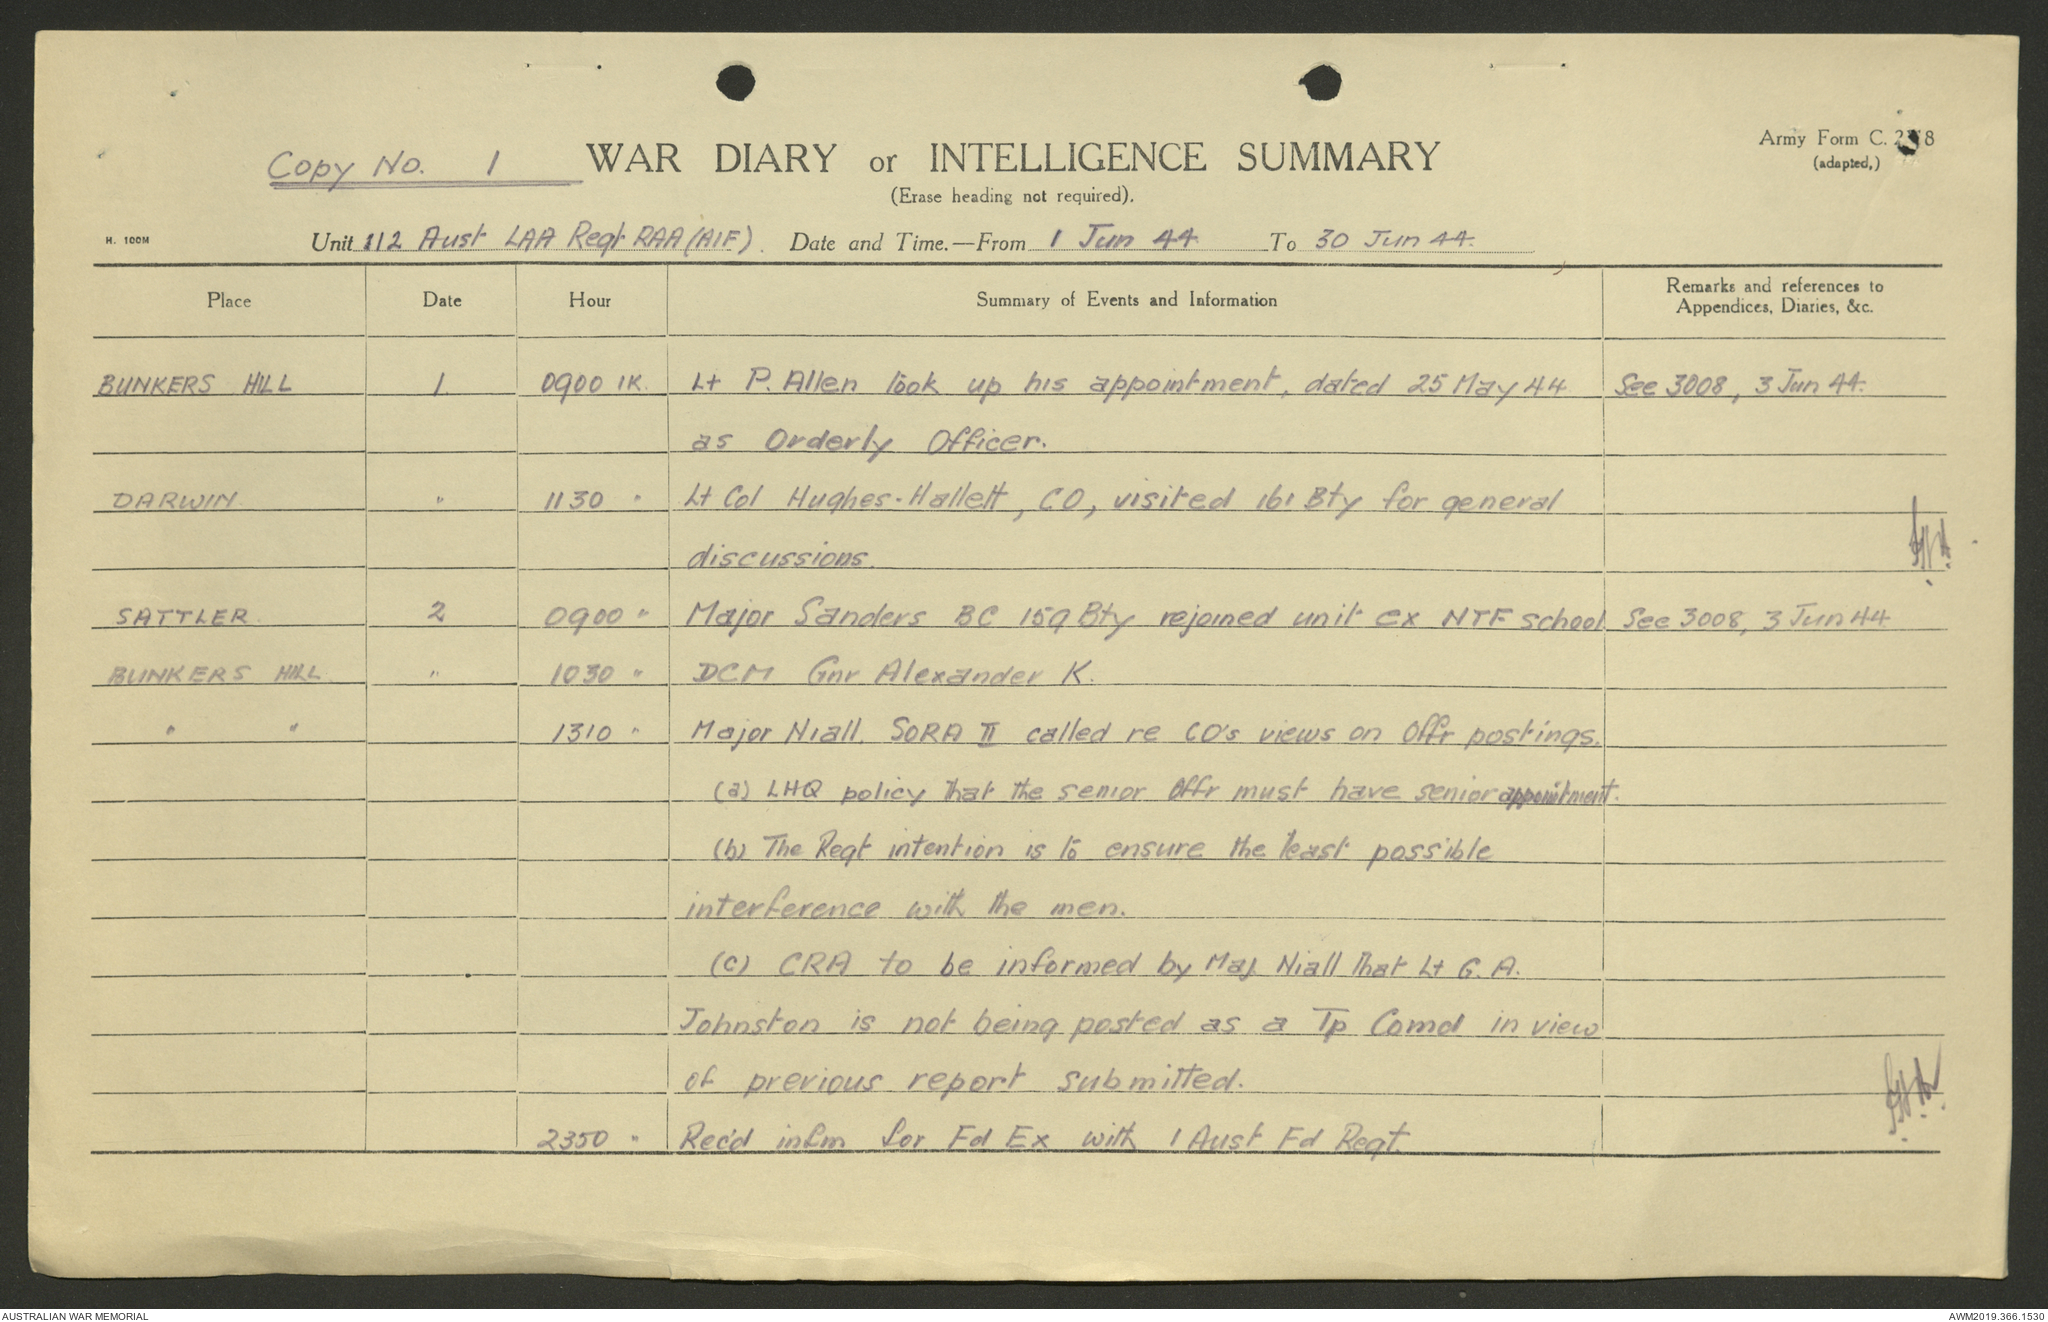 Army Form C. 2118
(adapted.)
Copy No. 1
WAR DIARY or INTELLIGENCE SUMMARY
(Erase heading not required).
H. 100M
Unit 112 Aust LAA Regt RAA (AIF). Date and Time.—From 1 Jun 44. To 30 Jun 44.
Place Date Hour Summary of Events and Information Remarks and references to
Appendices, Diaries, &c.
BUNKERS HILL 1. 0900 IK. Lt P. Allen took up his appointment, dated 25 May 44 See 3008, 3 Jun 44.
as Orderly Officer.
DARWIN. " 1130 " Lt Col Hughes-Hallett, CO, visited 161 Bty for general
discussions.
SATTLER. 2 0900 " Major Sanders BC 159 Bty rejoined unit ex NTF school See 3008, 3 Jun 44
BUNKERS HILL " 1030 " DCM Gnr Alexander K.
" " 1310 " Major Niall. SORA II called re CO's views on Offr postings.
(a) LHQ policy that the senior Offr must have senior appointment.
(b) The Regt intention is to ensure the least possible
interference with the men.
(c) CRA to be informed by Maj Niall that Lt G. A.
Johnston is not being posted as a Tp Comd in view
of previous report submitted.
2350 " Rec'd infm for Fd Ex with 1 Aust Fd Regt.
AUSTRALIAN WAR MEMORIAL AWM2019.366.1530